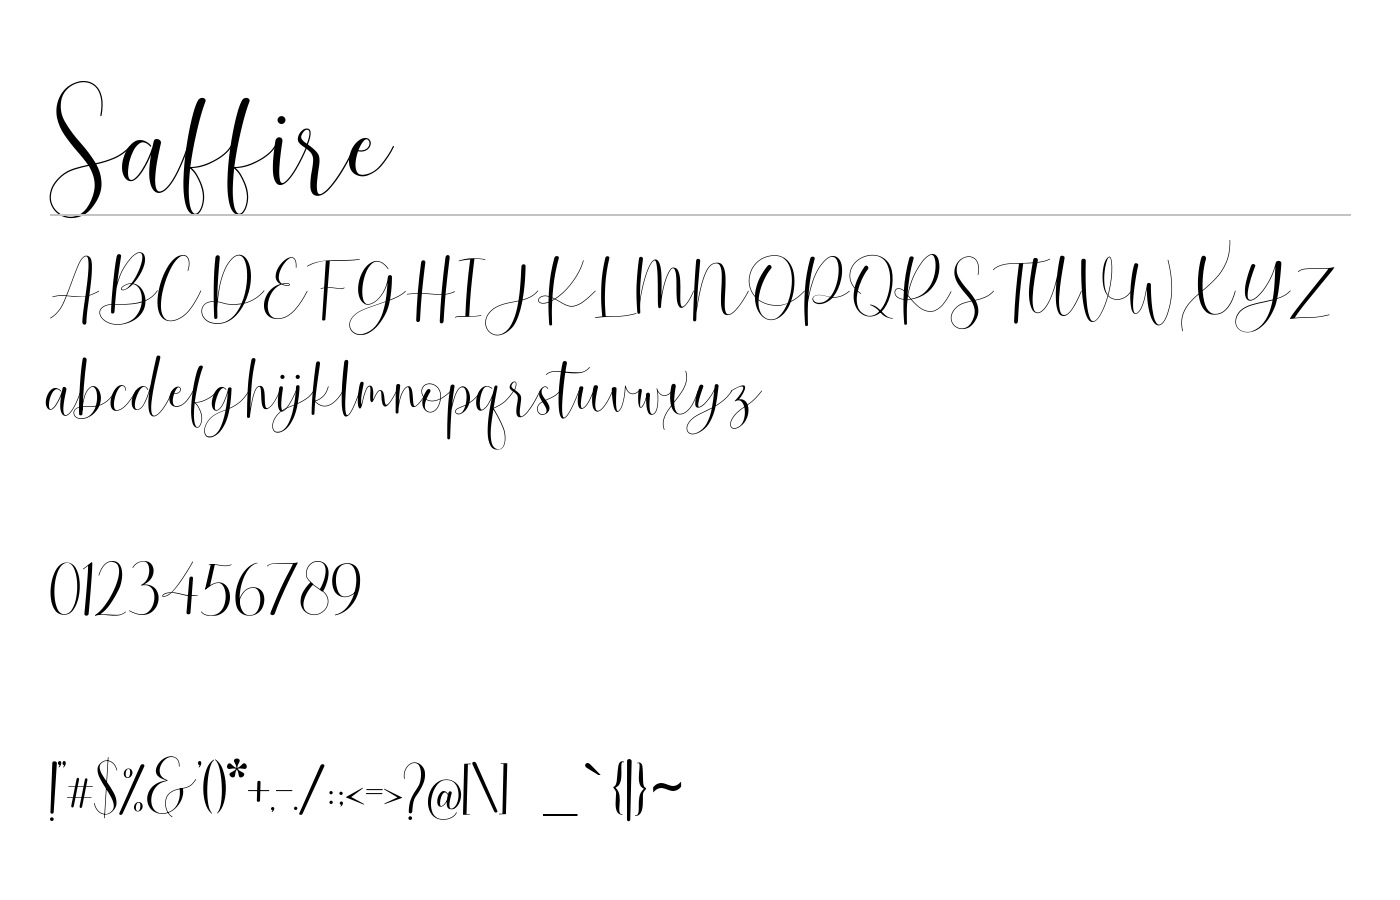 Saffire
ABCDEFGHIJKLMNOPQRSTUVWXYZ
abcdefghijklmnopqrstuvwxyz
0123456789
!"#$%&'()*+,-./:;<=>?@[\] _`{|}~